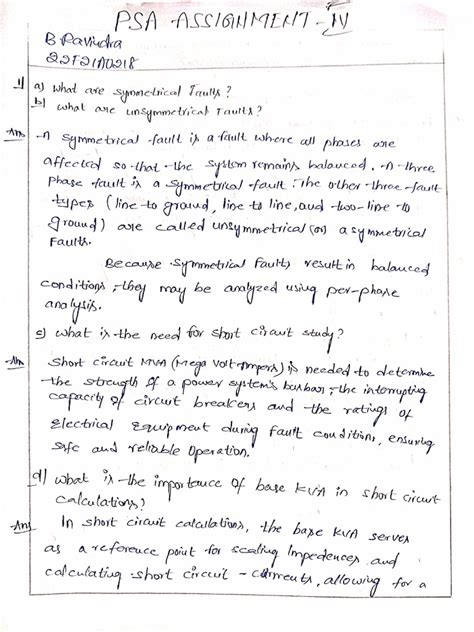 PSA ASSIGNMENT-IV
B Ravindra
22F21A0218
1) a) What are symmetrical Faults?
b) what are unsymmetrical Faults?
Ans A symmetrical fault is a fault where all phases are
affected so that the system remains balanced. A three
phase fault is a symmetrical fault. The other three fault
types (line to ground, line to line, and two-line to
ground) are called unsymmetrical (or) asymmetrical
Faults.
Because symmetrical faults result in balanced
conditions, they may be analyzed using per-phase
analysis.
c) what is the need for short circuit study?
Ans Short circuit MVA (Mega Volt-Ampers) is needed to determine
the strength of a power system's busbar, the interrupting
capacity of circuit breakers and the ratings of
Electrical Equipment during fault conditions, ensuring
safe and reliable operation.
d) what is the importance of base KVA in short circuit
calculations?
Ans In short circuit calculations, the base KVA serves
as a reference point for scaling Impedences and
calculating short circuit - currents, allowing for a